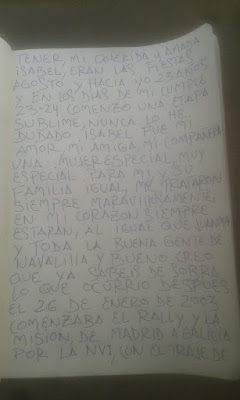 TENER, MI QUERIDA Y AMADA
ISABEL, ERAN LAS FIESTAS
AGOSTO Y HACIA YO 23 AÑOS
Y EN LOS DIAS DE MI CUMPLE
23-24 COMENZO UNA ETAPA
SUBLIME, NUNCA LO HE
DUDADO ISABEL FUE MI
AMOR, MI AMIGA, MI COMPAÑERA
UNA MUJER ESPECIAL, MUY
ESPECIAL PARA MI Y SU
FAMILIA IGUAL, ME TRATARON
SIEMPRE MARAVILLOSAMENTE
EN MI CORAZON SIEMPRE
ESTARAN, AL IGUAL QUE
Y TODA LA BUENA GENTE DE
NAVALILLA Y BUENO CREO
QUE YA SABEIS DE SOBRA
LO QUE OCURRIO DESPUES
EL 26 DE ENERO DE 2003
COMENZABA EL RALLY Y LA
MISION, DE MADRID A GALICIA
POR LA NVI, CON EL TRAJE DE